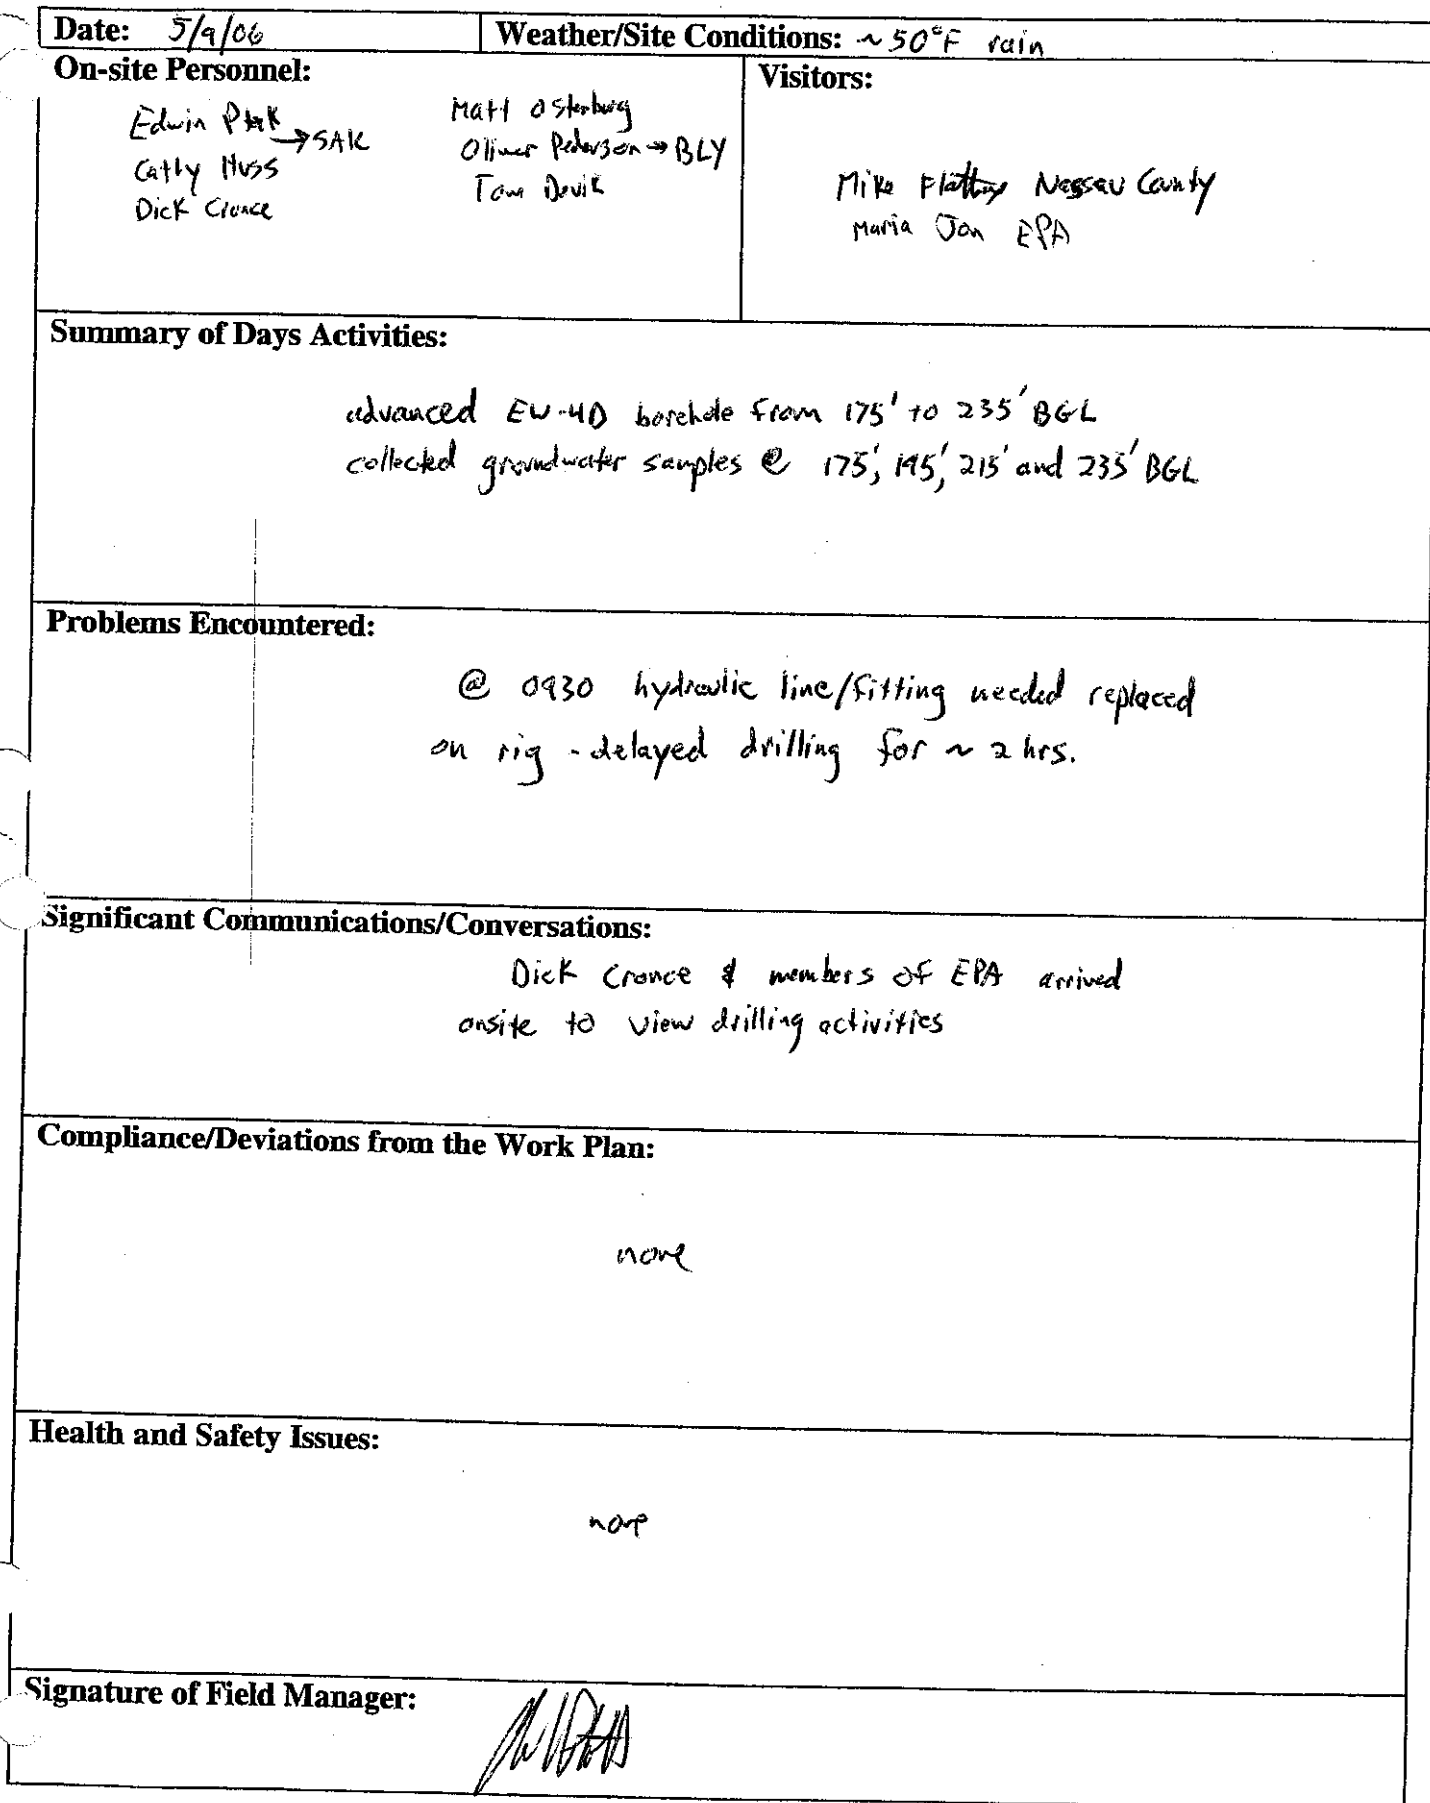 Date: 5/9/06 Weather/Site Conditions: ~50°F rain
On-site Personnel: Visitors:
Edwin Ptak →SAK Matt Osterburg
Cathy Huss Oliver Pederson → BLY
Dick Cronce Tom Devik
Mike Nassau County
Maria Jon EPA
Summary of Days Activities:
advanced EW-4D borehole from 175' to 235' BGL
collected groundwater samples @ 175', 195', 215' and 235' BGL
Problems Encountered:
@ 0930 hydraulic line/fitting needed replaced
on rig - delayed drilling for ~ 2 hrs.
Significant Communications/Conversations:
Dick Cronce & members of EPA arrived
onsite to view drilling activities
Compliance/Deviations from the Work Plan:
none
Health and Safety Issues:
none
Signature of Field Manager: